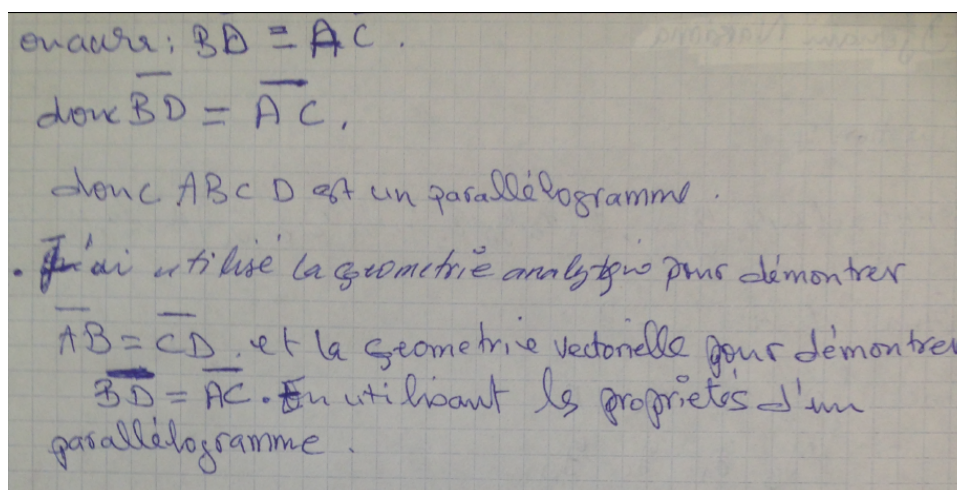 on aura : BD = AC.
donc BD = AC.
donc ABCD est un parallélogramme.
. J'ai utilisé la géometrie analytque pour démontrer
AB = CD. et la géometrie vectorielle pour démontrer
BD = AC. En utilisant les propriétés d'un
parallélogramme.